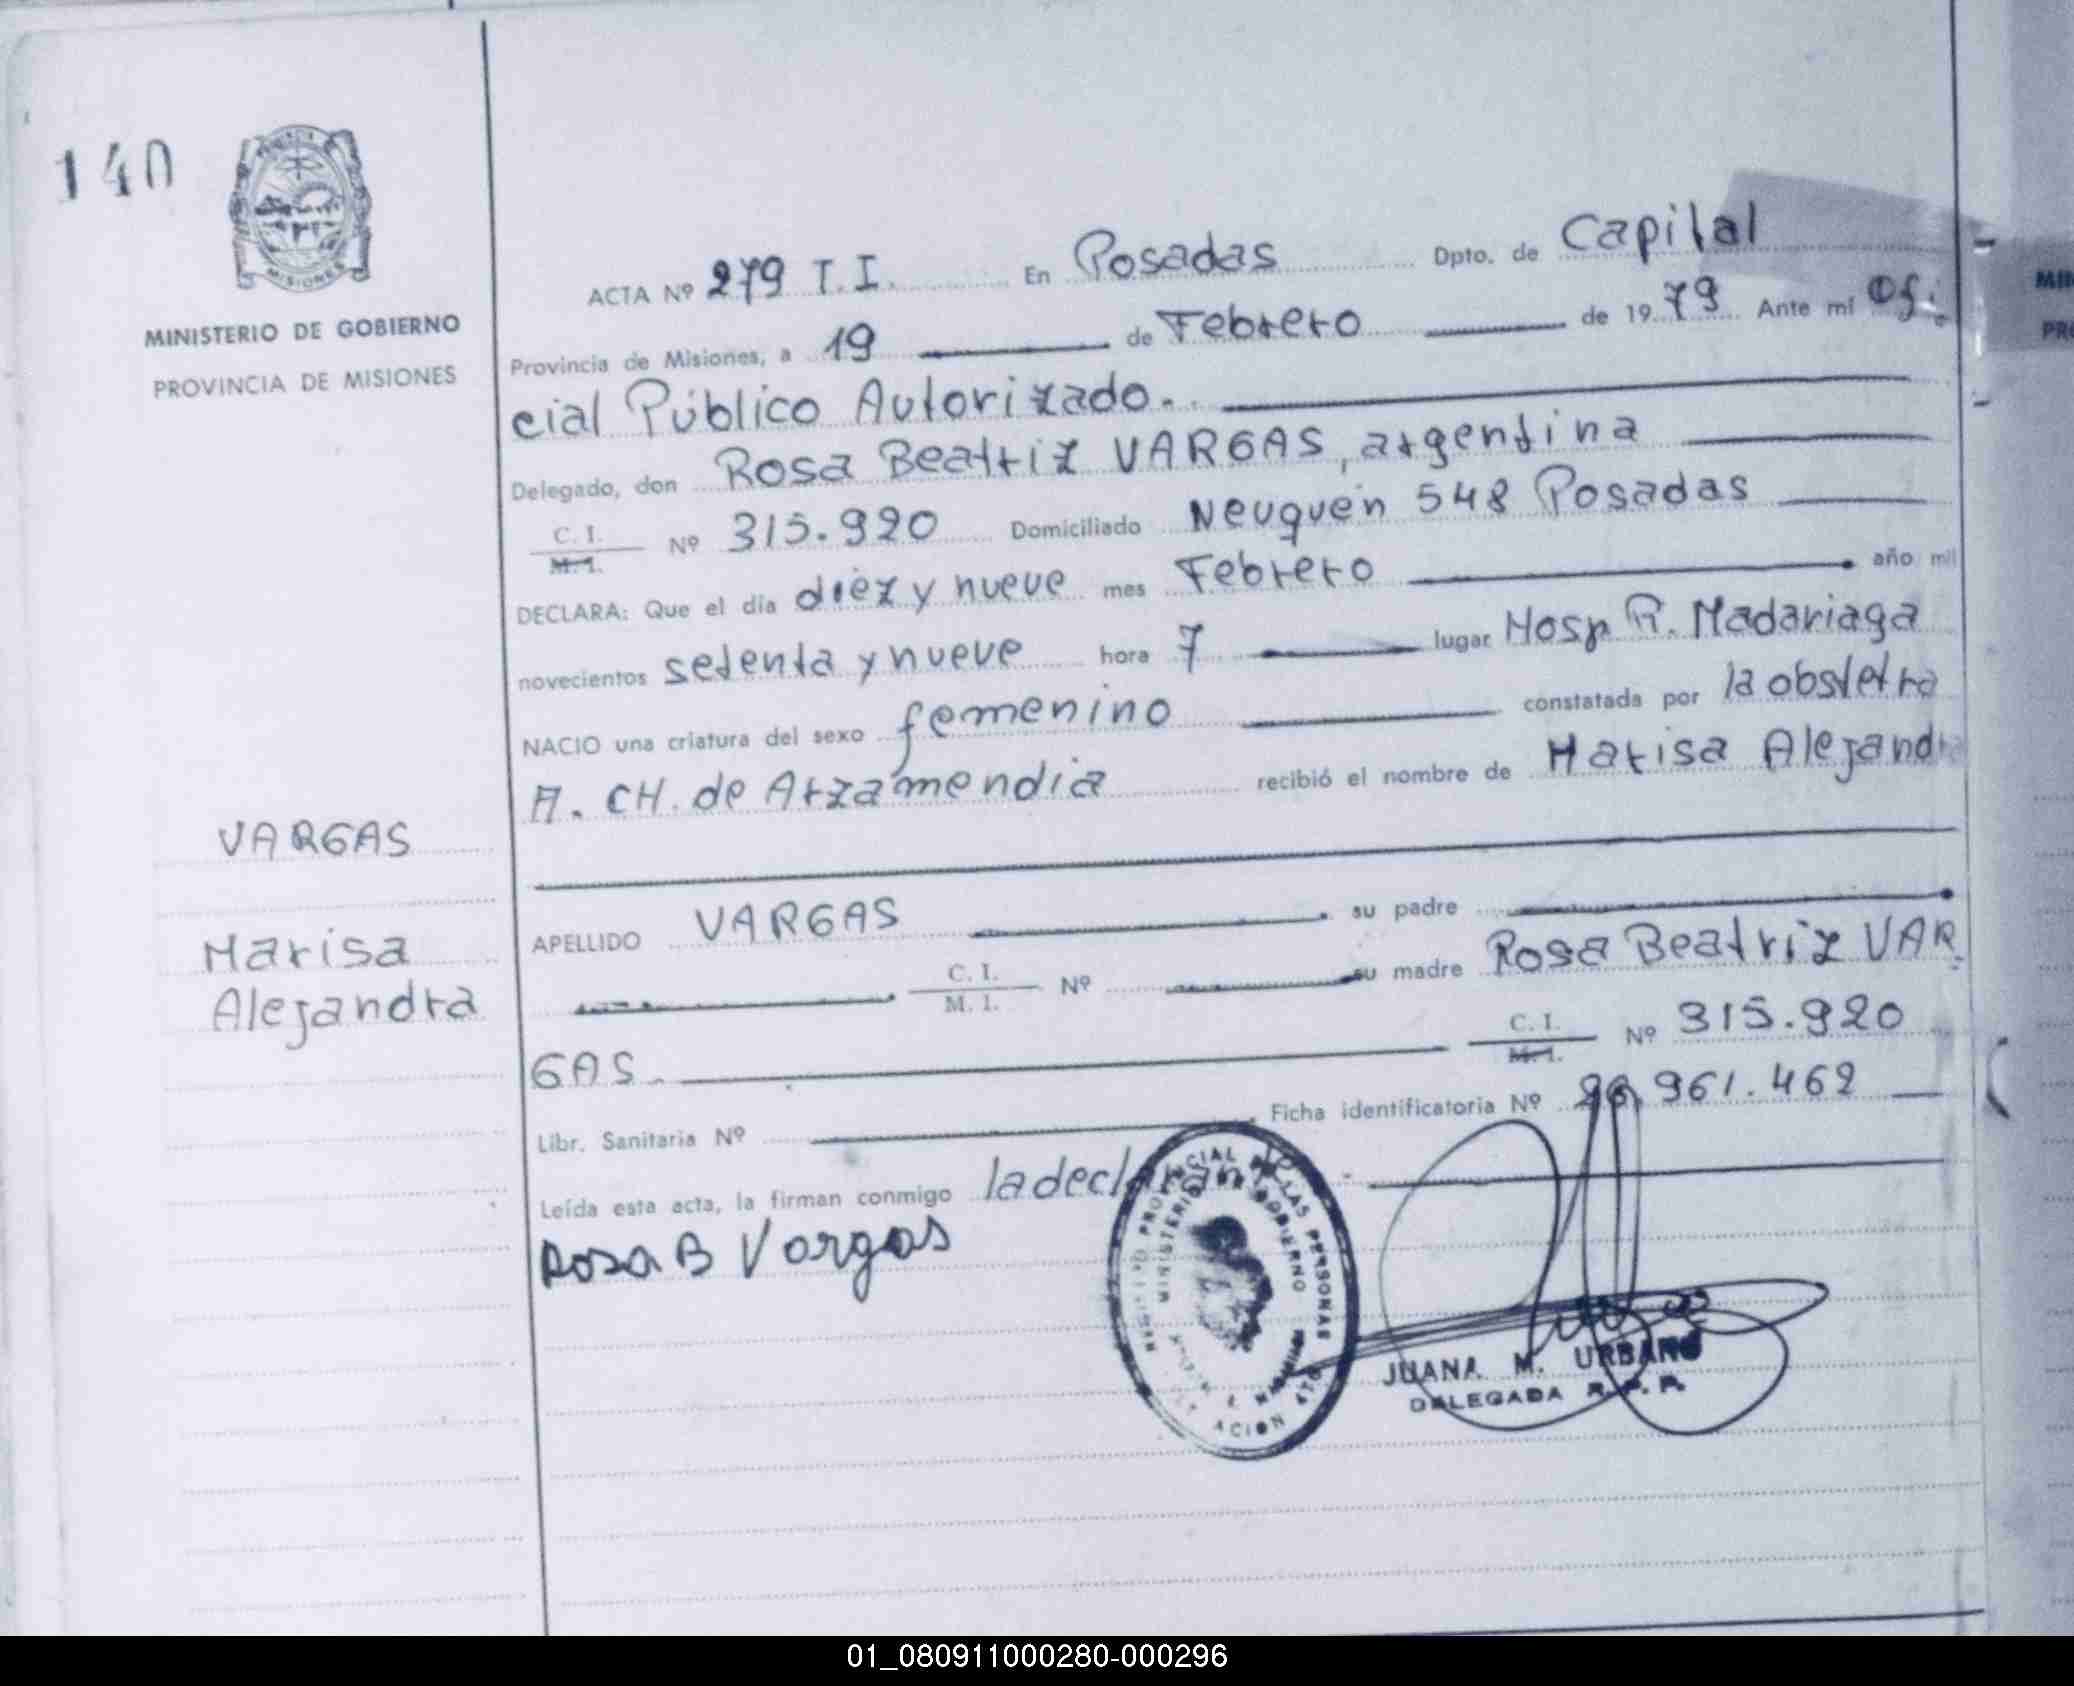 140
MISIONES
MINISTERIO DE GOBIERNO
PROVINCIA DE MISIONES
ACTA Nº 279 T.I. En Posadas Dpto. de Capital
Provincia de Misiones, a 19 de Febrero de 1979 Ante mí Ofi:
cial Público Autorizado.
Delegado, don Rosa Beatriz VARGAS, argentina
C. I.
M. I. Nº 315.920 Domiciliado Neuquén 548 Posadas
DECLARA: Que el día diez y nueve mes Febrero año mil
novecientos setenta y nueve hora 7 lugar Hosp R. Madariaga
NACIO una criatura del sexo femenino constatada por la obstetra
A. CH. de Arzamendia recibió el nombre de Marisa Alejandra
VARGAS
Marisa
Alejandra
APELLIDO VARGAS su padre
C. I.
M. I. Nº su madre Rosa Beatriz VAR
GAS. C. I.
M. I. Nº 315.920
Libr. Sanitaria Nº Ficha identificatoria Nº 26.961.462
Leída esta acta, la firman conmigo la declarante
Rosa B Vargas
PROVINCIAL DE LAS PERSONAS
MINISTERIO DE GOBIERNO
JUANA M. URBANO
DELEGADA R. P. P.
MIN
PRO
01_080911000280-000296